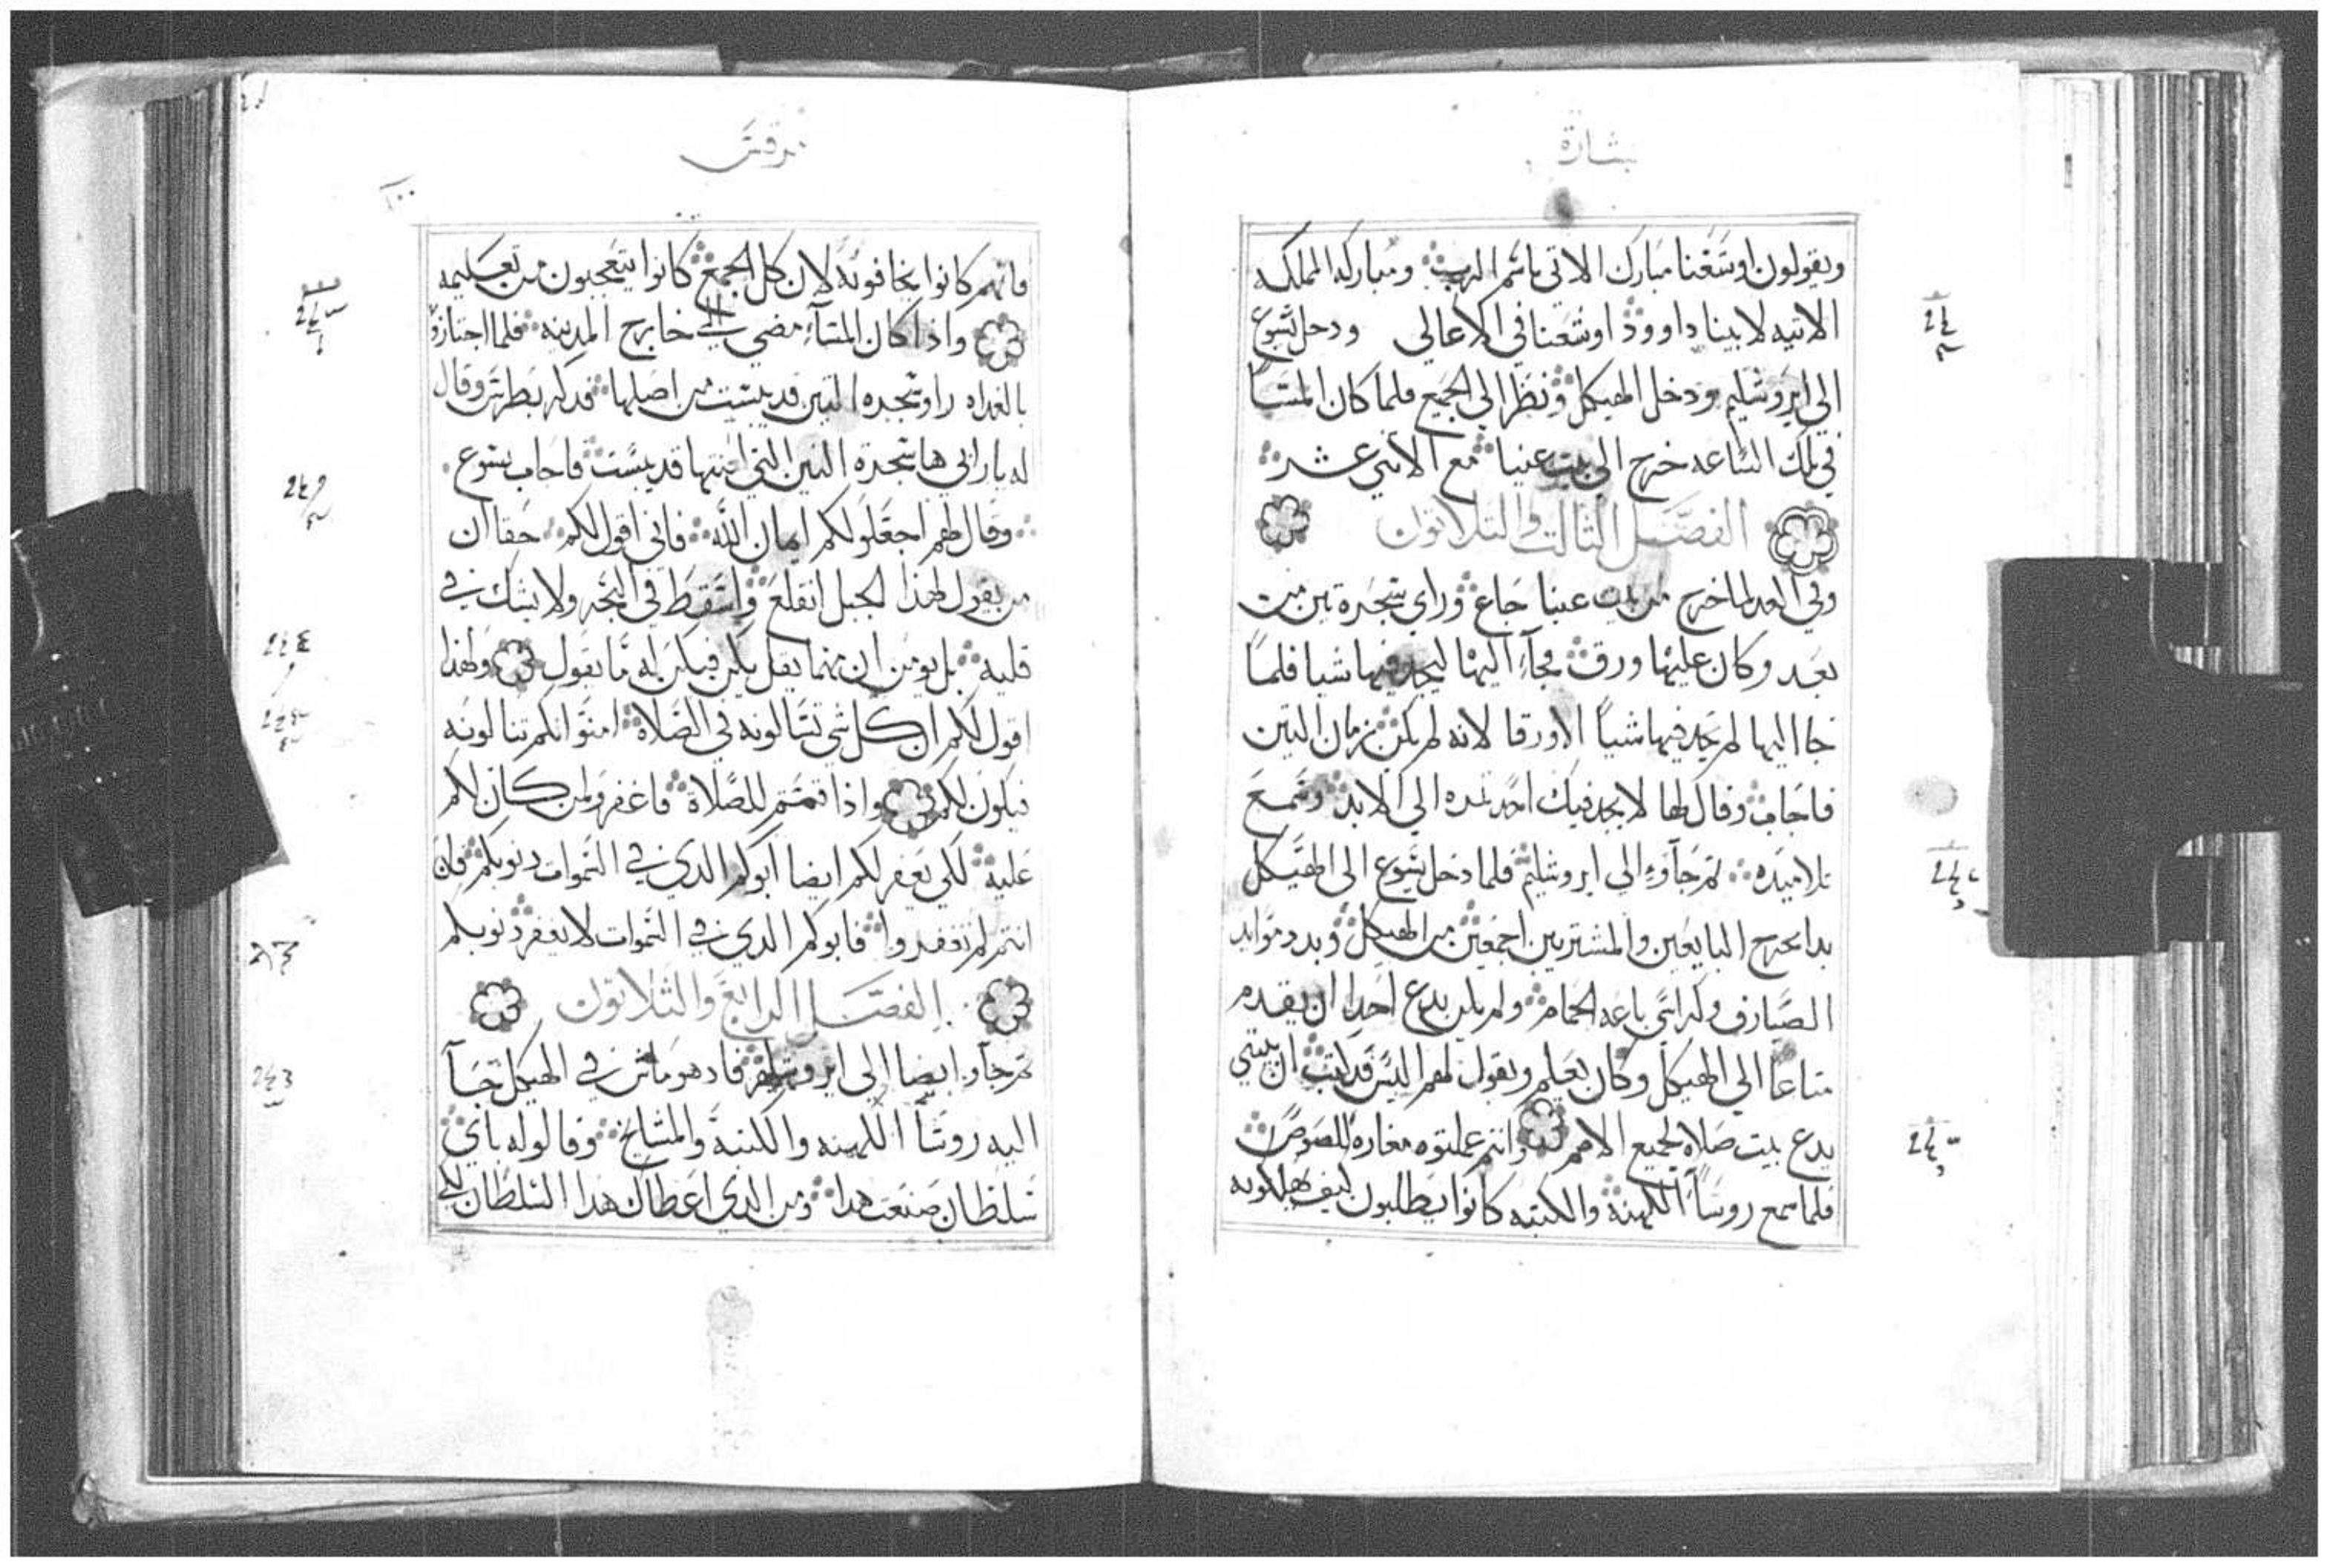 بشارة
ويقولون اوشعنا مبارك الاتى باسم الرب ومباركه المملكه
الاتيه لابينا داوود اوشعنا في الاعالي ودخل يسوع
الى ايروشليم ودخل الهيكل ونظر الى الجميع فلما كان المسا
في تلك الساعه خرج الى بيت عنيا مع الاثني عشر
الفصل الثالث والثلاثون
وفي الغد لما خرج من بيت عنيا جاع وراي شجرة تين من
بعد وكان عليها ورق فجآء اليها ليجد فيها شيا فلما
جا اليها لم يجد فيها شياً الا ورقا لانه لم يكن زمان التين
فاجاب وقال لها لا يجد فيك احد تمره الى الابد وسمع
تلاميذه ثم جآوو الى ايروشليم فلما دخل يسوع الى الهيكل
بدا يخرج البايعين والمشتريين اجمعين من الهيكل وبدد موايد
الصيارف وكراسي باعه الحمام ولم يكن يدع احدا ان يقدم
متاعاً الى الهيكل وكان يعلم ويقول لهم اليس قد كتب ان بيتي
يدع بيت صلاه لجميع الامم وانتم عملتوه مغارة للصوص
فلما سمع روسآ الكهنه والكتبه كانوا يطلبون كيف يهلكونه
مرقس
١٠٠
فانهم كانوا يخافونه لان كل الجمع كانوا يتعجبون من تعليمه
واذا كان المسآء مضى الى خارج المدينه فلما اجتازو
بالغداه راو شجره التين قد يبست من اصلها فدكر بطرس وقال
له يا رابي ها شجرة التين التي لعنتها قد يبست فاجاب يسوع
وقال لهم اجعلو لكم ايمان الله فاني اقول لكم حقا ان
من يقول لهذا الجبل انقلع واسقط في البحر ولا يشك في
قلبه بل يومن ان مهما يقل يكن فيكن له ما يقول ولهذا
اقول لكم ان كل شي تسالونه في الصلاة امنوا انكم تنالونه
فيكون لكم واذا قمتم للصلاة فاغفرو لمن كان لكم
عليه لكي يغفر لكم ايضا ابوكم الدي في السموات دنوبكم فان
انتم لم تغفروا فابوكم الدي في السموات لا يغفر دنوبكم
الفصل الرابع والثلاثون
ثم جآو ايضا الى ايروشليم فاد هو ماش في الهيكل جآ
اليه روسآ الكهنه والكتبة والمشايخ وقالو له باي
سلطان صنعت هدا ومن الدي اعطاك هدا السلطان لكي